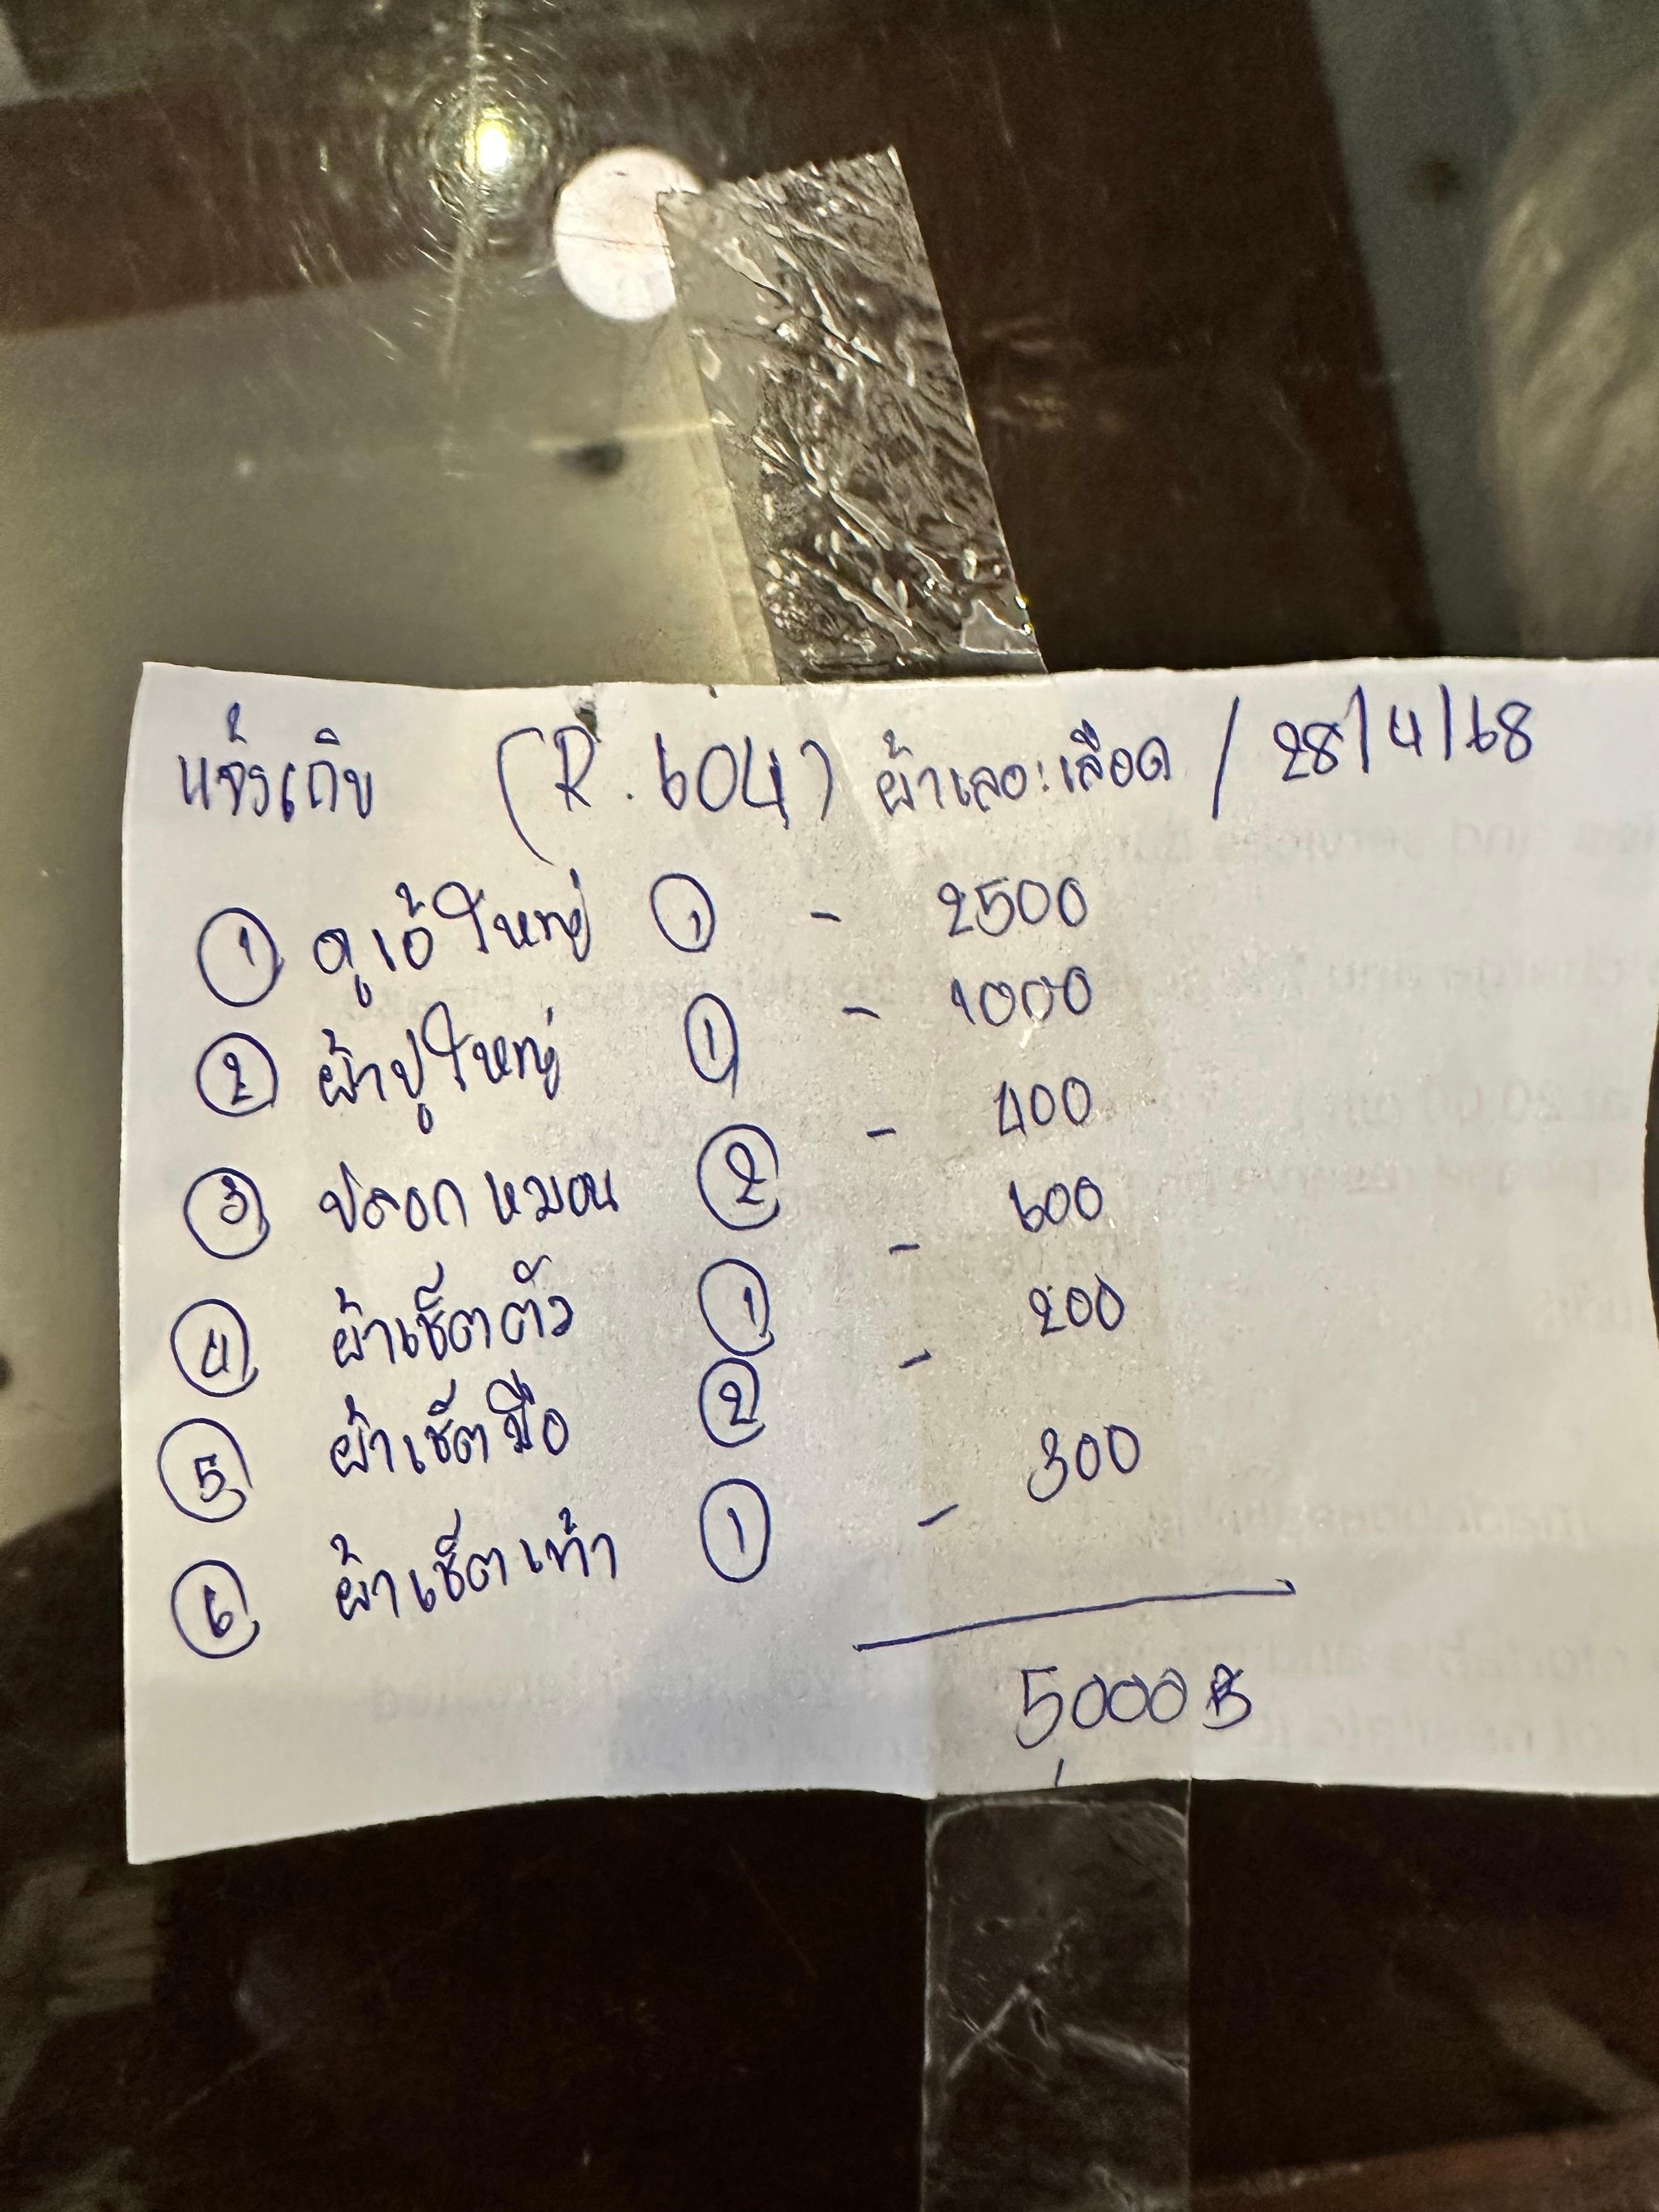 แจ้งเก็บ (R. 604) ผ้าเลอะเลือด / 28/4/68
① ดูเว้ใหญ่ ① - 2500
② ผ้าปูใหญ่ ① - 1000
③ ปลอกหมอน ② - 400
④ ผ้าเช็ดตัว ① - 600
⑤ ผ้าเช็ดมือ ② - 200
⑥ ผ้าเช็ดเท้า ① - 300
5,000 ฿